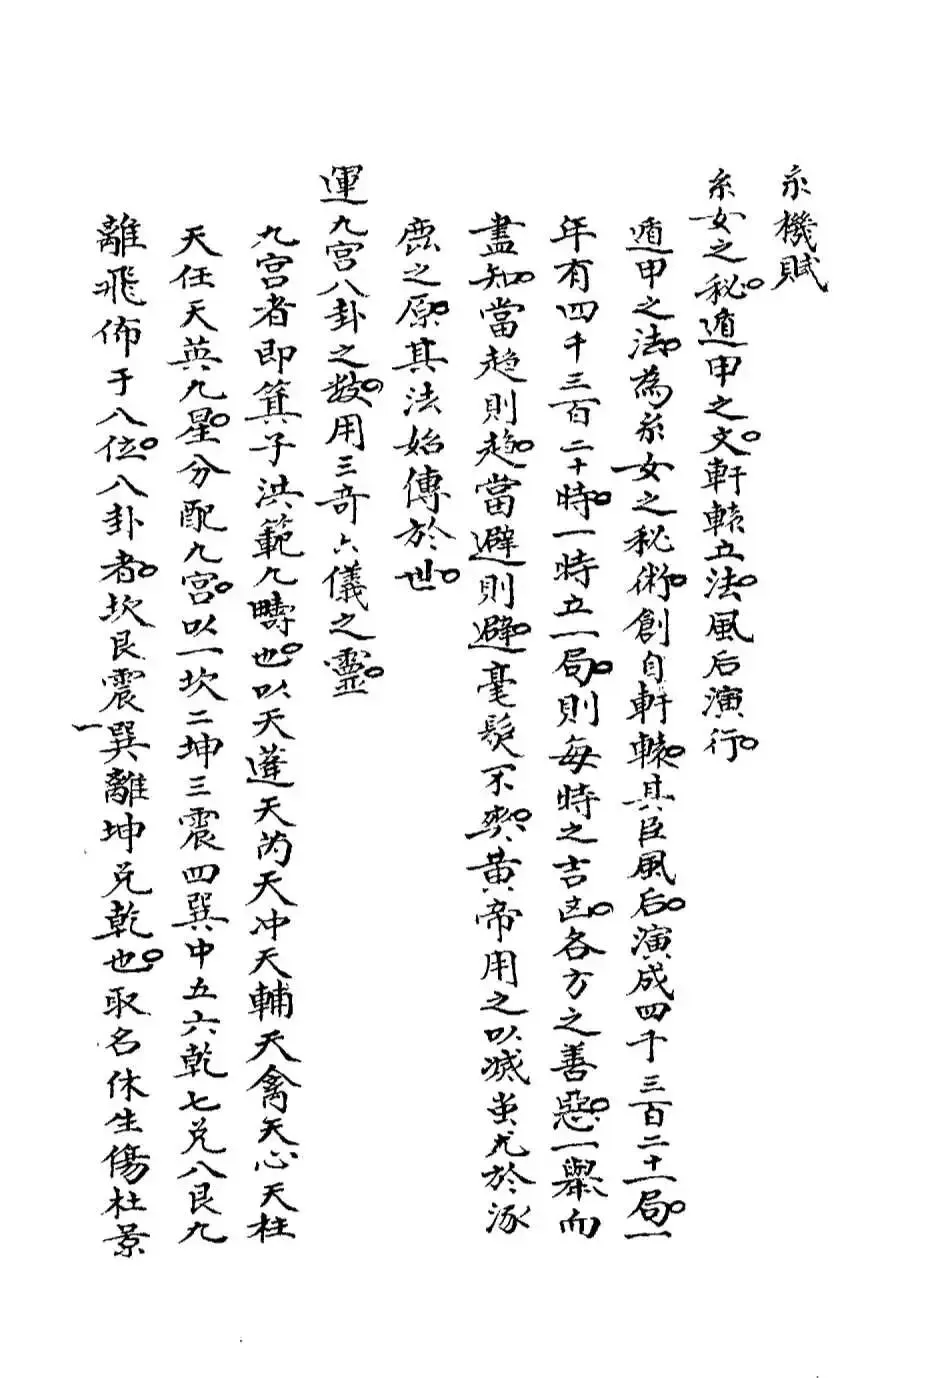 玄機賦
玄女之秘。遁甲之文。軒轅立法。風后演行。
遁甲之法。為玄女之秘術。創自軒轅。其臣風后。演成四千三百二十局。一
年有四千三百二十時。一時立一局。則每時之吉凶。各方之善惡。一舉而
盡知。當趋則趋。當避則避。毫髮不爽。黃帝用之以滅蚩尤於涿
鹿之原。其法始傳於世。
運九宮八卦之数。用三奇六儀之靈。
九宮者即箕子洪範九疇也。以天蓬天芮天冲天輔天禽天心天柱
天任天英九星。分配九宮。以一坎二坤三震四巽中五六乾七兑八艮九
離飛佈于八位。八卦者。坎艮震巽離坤兑乾也。取名休生傷杜景